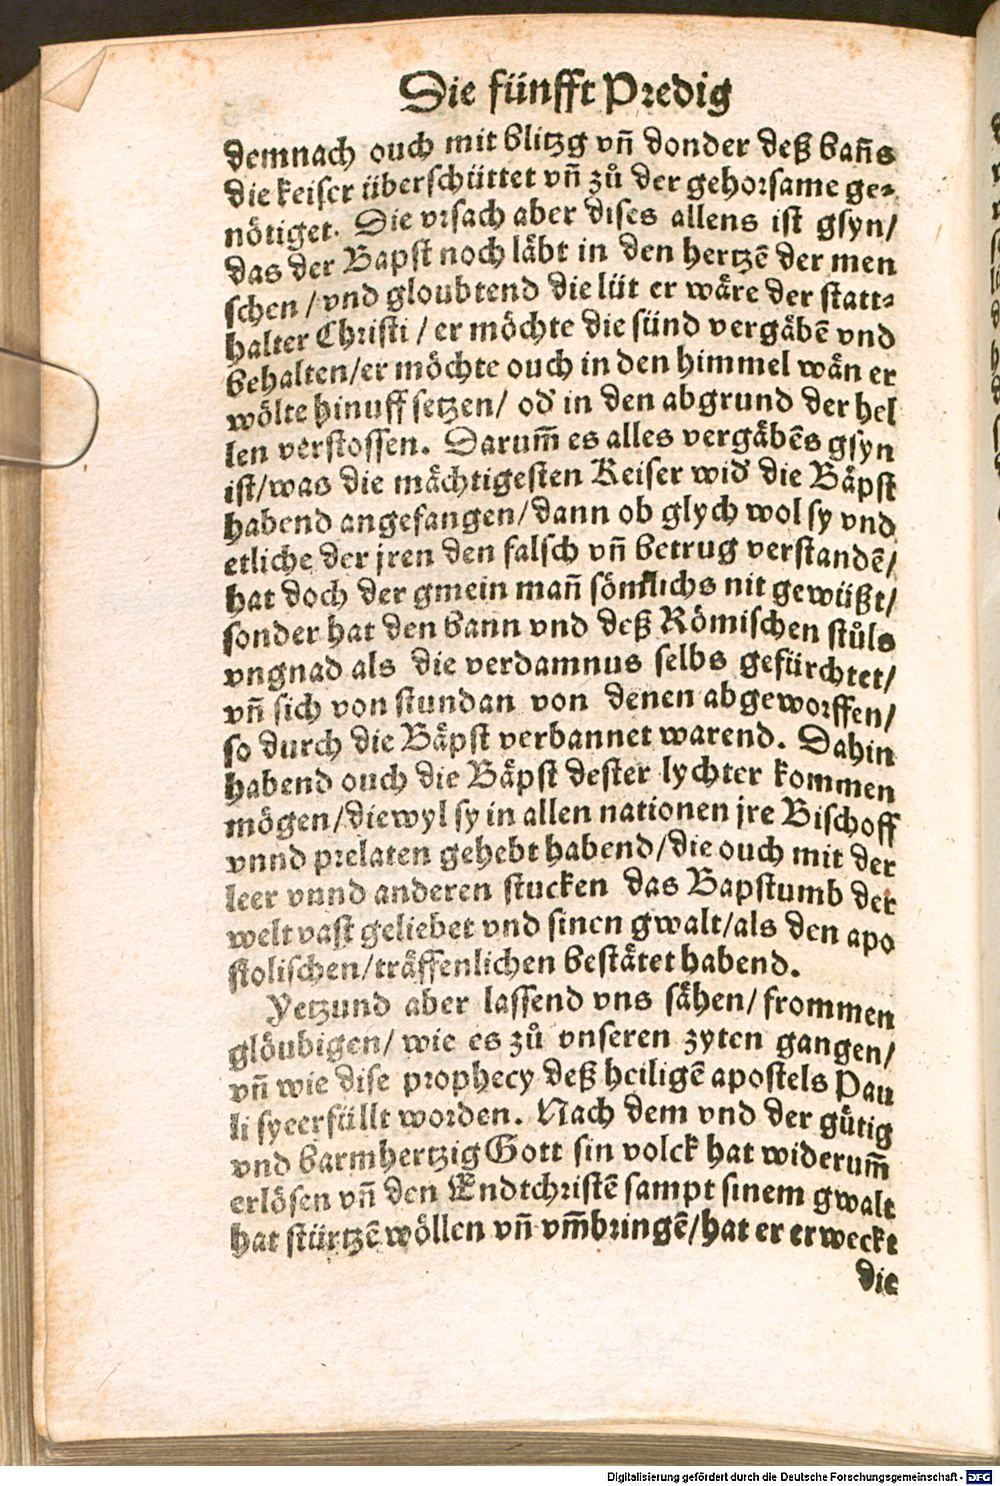 Die fünfft Predig
demnach ouch mit blitzg vñ donder deß bañs
die keiser überschüttet vñ zů der gehorsame ge-
nötiget. Die vrsach aber dises allens ist gsyn/
das der Bapst noch läbt in den hertzẽ der men
schen / vnd gloubtend die lüt er wäre der statt-
halter Christi / er möchte die sünd vergäbẽ vnd
behalten/er möchte ouch in den himmel wän er
wölte hinuff setzen/ od' in den abgrund der hel
len verstossen. Darum̃ es alles vergäbẽs gsyn
ist/was die mächtigesten Keiser wid' die Bäpst
habend angefangen/dann ob glych wol sy vnd
etliche der jren den falsch vñ betrug verstandẽ/
hat doch der gmein mañ sömlichs nit gewüßt/
sonder hat den bann vnd deß Römischen stůls
vngnad als die verdamnus selbs gefürchtet/
vñ sich von stundan von denen abgeworffen/
so durch die Bäpst verbannet warend. Dahin
habend ouch die Bäpst dester lychter kommen
mögen/diewyl sy in allen nationen jre Bischoff
vnnd prelaten gehebt habend/die ouch mit der
leer vnnd anderen stucken das Bapstumb der
welt vast geliebet vnd sinen gwalt/als den apo
stolischen/träffenlichen bestätet habend.
Yetzund aber lassend vns sähen/ frommen
glöubigen/ wie es zů vnseren zyten gangen/
vñ wie dise prophecy deß heiligẽ apostels Pau
li sye erfüllt worden. Nach dem vnd der gütig
vnd barmhertzig Gott sin volck hat widerum̃
erlösen vñ den Endtchristẽ sampt sinem gwalt
hat stürtzẽ wöllen vñ vm̃bringẽ/hat er erweckt
die
Digitalisierung gefördert durch die Deutsche Forschungsgemeinschaft - DFG